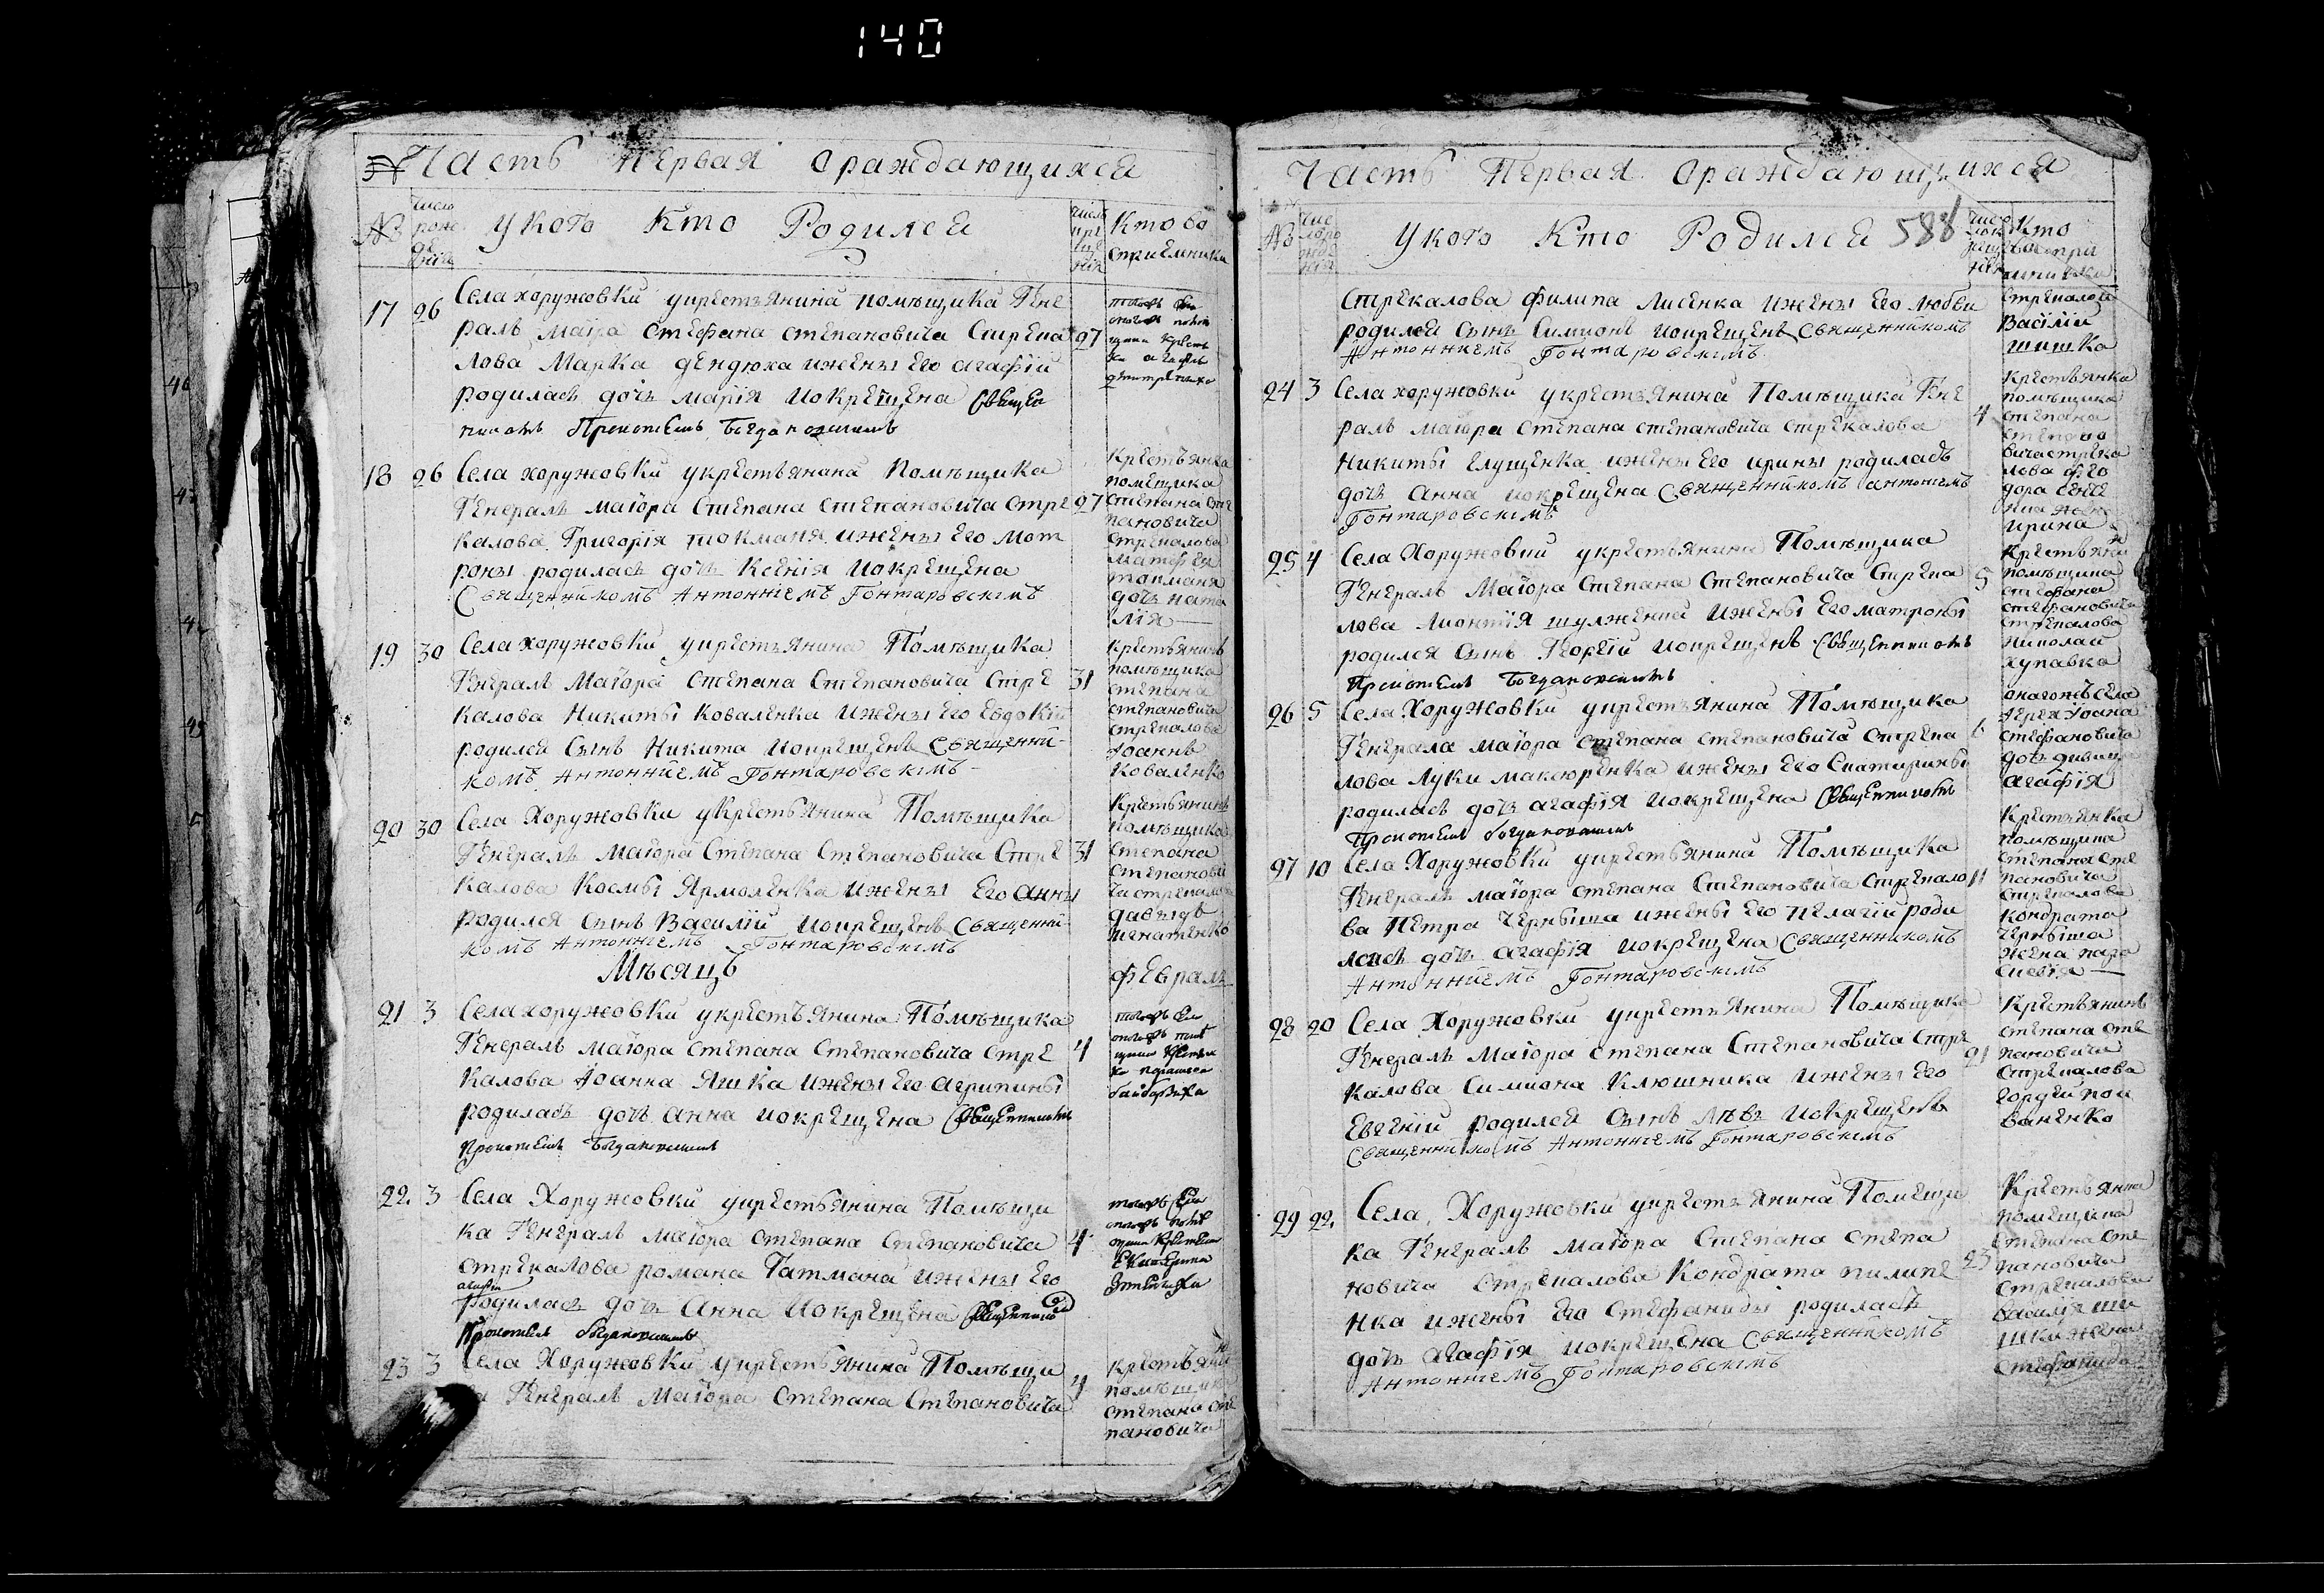 140
Часть первая ораждающихся
№ число рождения У кого Кто Родился число крещения Кто восприемники
17 26 Села хоружовки укрестьянина помѣщика Гене
ралъ маіора Стефана степановича Стрека 27
лова Марка дендюха ижены его агафіи
родилась дочь марія иокрещена Священ
никомъ Прокопіемъ Богдановичемъ
18 26 Села хоружовки укрестьянина помѣщика
Генералъ маіора Степана степановича стре 27
калова Григорія токманя ижены его мот
роны родилась дочь Ксенія иокрещена
Священникомъ Антоніемъ Гонтаровскимъ
Крестьянка
помещика
Степана сте
пановича
Стрекалова
матфея
токманя
дочь ната
лія
19 30 Села хоружовки укрестьянина Помѣщика
Генералъ Маіора Степана Степановича Стре 31
калова Никиты Коваленка ижены его Евдокіи
родился сынъ Никита иокрещенъ Священни-
комъ Антоніемъ Гонтаровскимъ
Крестьянинъ
помѣщика
степана
степановича
стрекалова
Іоаннъ
Коваленко
20 30 Села Хоружовки укрестьянина Помѣщика
Генералъ Маіора Степана Степановича Стре 31
калова Космы Ярмоленка ижены Его Анны
родился сынъ Василій иокрещенъ Священни-
комъ Антоніемъ Гонтаровскимъ
Крестьянинъ
помѣщика
степана
степанови
ча стрекалова
давыдъ
Мѣсяцъ февраль
21 3 Села хоружовки укрестьянина Помѣщика
Генералъ маіора степана Степановича Стре 4
калова Іоанна Яшка ижены Его агрипины
родилась дочь анна иокрещена Священникомъ
Прокопіемъ Богдановичемъ
22. 3 Села Хоружовки укрестьянина Помѣщи
ка Генералъ маіора степана Степановича 4
стрекалова романа Гатмана ижены Его
агафіи
родилась дочь Анна иокрещена Священникомъ
Прокопіемъ Богдановичемъ
23 3 Села Хоружовки укрестьянина Помѣщи
ка Генералъ Маіора Степана Степановича 4
помѣщика
степана сте
пановича
Часть Первая ораждающихся
№ число рождения У кого Кто Родился 588 Кто восприемники
Стрекалова филипа лисенка ижены его любви
родился сынъ Симионъ иокрещенъ Священникомъ
Антоніемъ Гонтаровскимъ
Стрекалова
Василій
шишка
24 3 Села хоружовки укрестьянина Помѣщика Гене
ралъ маіора степана степановича стрекалова 4
Никиты Елущенка ижены Его ирины родилась
дочь Анна иокрещена Священникомъ антоніемъ
Гонтаровскимъ
Крестьянка
помѣщика
степана
степано
вича стрека
лова фео
дора
ирина
25 4 Села Хоружовки укрестьянина Помѣщика
Генералъ Маіора Степана Степановича Стрека 5
лова Лионтія шулженка ижены Его матроны
родился сынъ Георгій иокрещенъ Священникомъ
Прокопіемъ Богдановичемъ
помѣщика
стефана
стефановича
стрекалова
николай
хупавка
26 5 Села Хоружовки укрестьянина Помѣщика
Генерала маіора степана степановича стрека 6
лова Луки максюренка ижены Его Екатирины
родилась дочь агафія иокрещена Священникомъ
Прокопіемъ Богдановичемъ
онагожъ села
Іерея Іоана
стефановича
дочь дивица
агафія
27 10 Села Хоружовки укрестьянина Помѣщика
Генералъ маіора степана Степановича стрекало 11
ва Петра Черныша ижены Его пелагіи роди
лась дочь агафія иокрещена Священникомъ
Антоніемъ Гонтаровскимъ
Крестьянка
помѣщика
степана сте
пановича
стрекалова
кондрата
черныша
жена пара
скевія
28 20 Села Хоружовки укрестьянина Помѣщика
Генералъ Маіора степана Степановича Стре 21
калова Симиона Ключника ижены Его
Евгеніи родился сынъ Левъ иокрещенъ
Священникомъ Антоніемъ Гонтаровскимъ
Крестьянинъ
степана сте
пановича
стрекалова
гордей кои
ваненко
29 22. Села Хоружовки укрестьянина Помещи
ка Генералъ маіора Степана степа 23
новича стрекалова Кондрата пилипе
нка ижены Его стефаниды родилась
дочь агафія иокрещена Священникомъ
Антоніемъ Гонтаровскимъ
Крестьянка
помещика
степана сте
пановича
стрекалова
василія ши
шки жена
стефанида